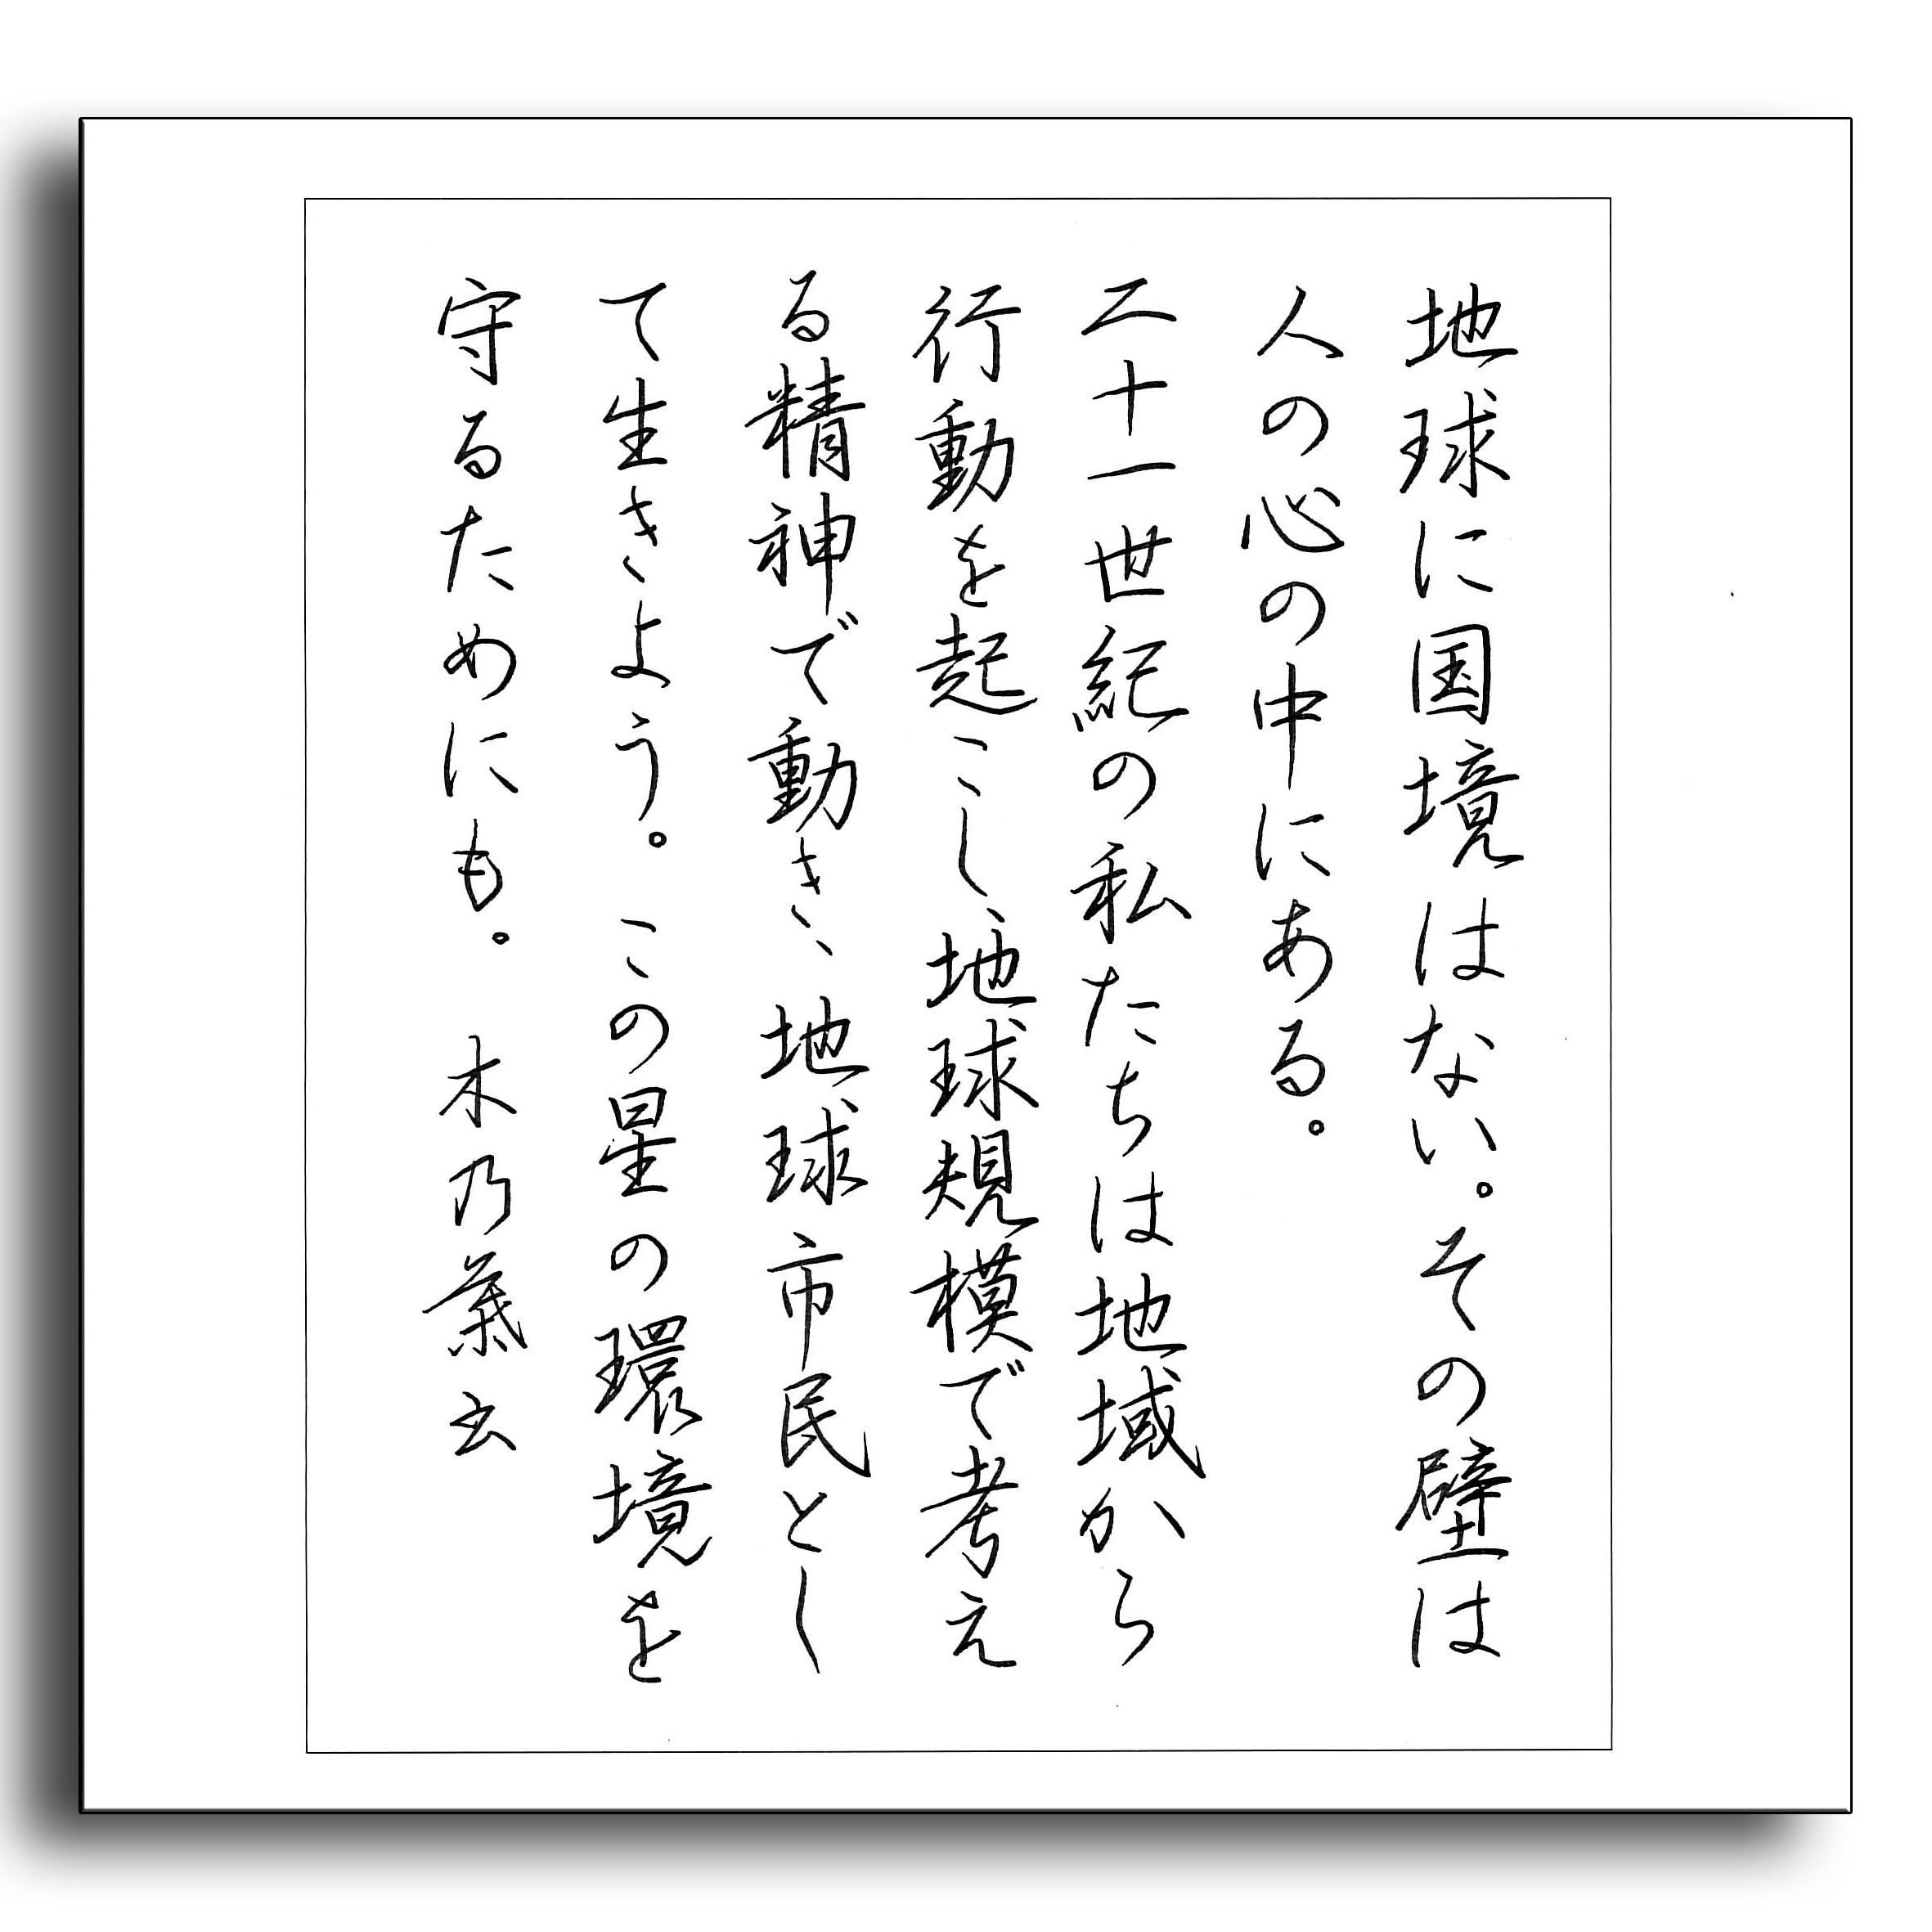 地球に国境はない。その壁は
人の心の中にある。
二十一世紀の私たちは地域から
行動を起こし、地球規模で考え
る精神で動き、地球市民とし
て生きよう。この星の環境を
守るためにも。 木乃葉玄